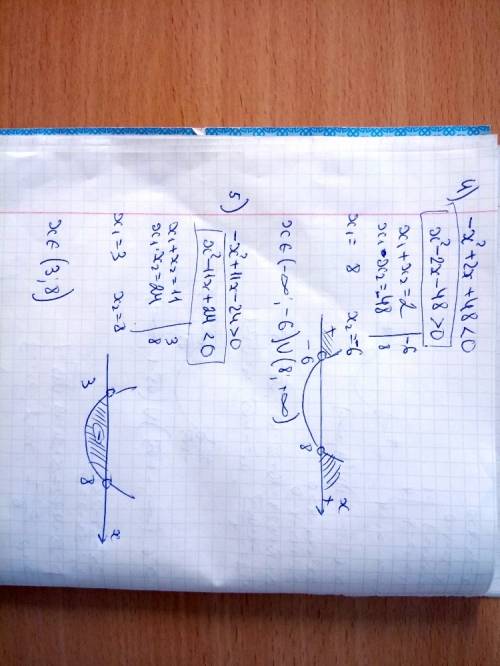 4) -x²+2x+48<0
x²-2x-48>0
x₁+x₂=2 | -6
x₁·x₂=-48 | 8
x₁= 8 x₂=-6
+ -6 8 + x
x∈(-∞;-6)∪(8;+∞)
5) -x²+11x-24>0
x²-11x+24<0
x₁+x₂=11 | 3
x₁·x₂=24 | 8
x₁=3 x₂=8
3 8 x
x∈(3;8)